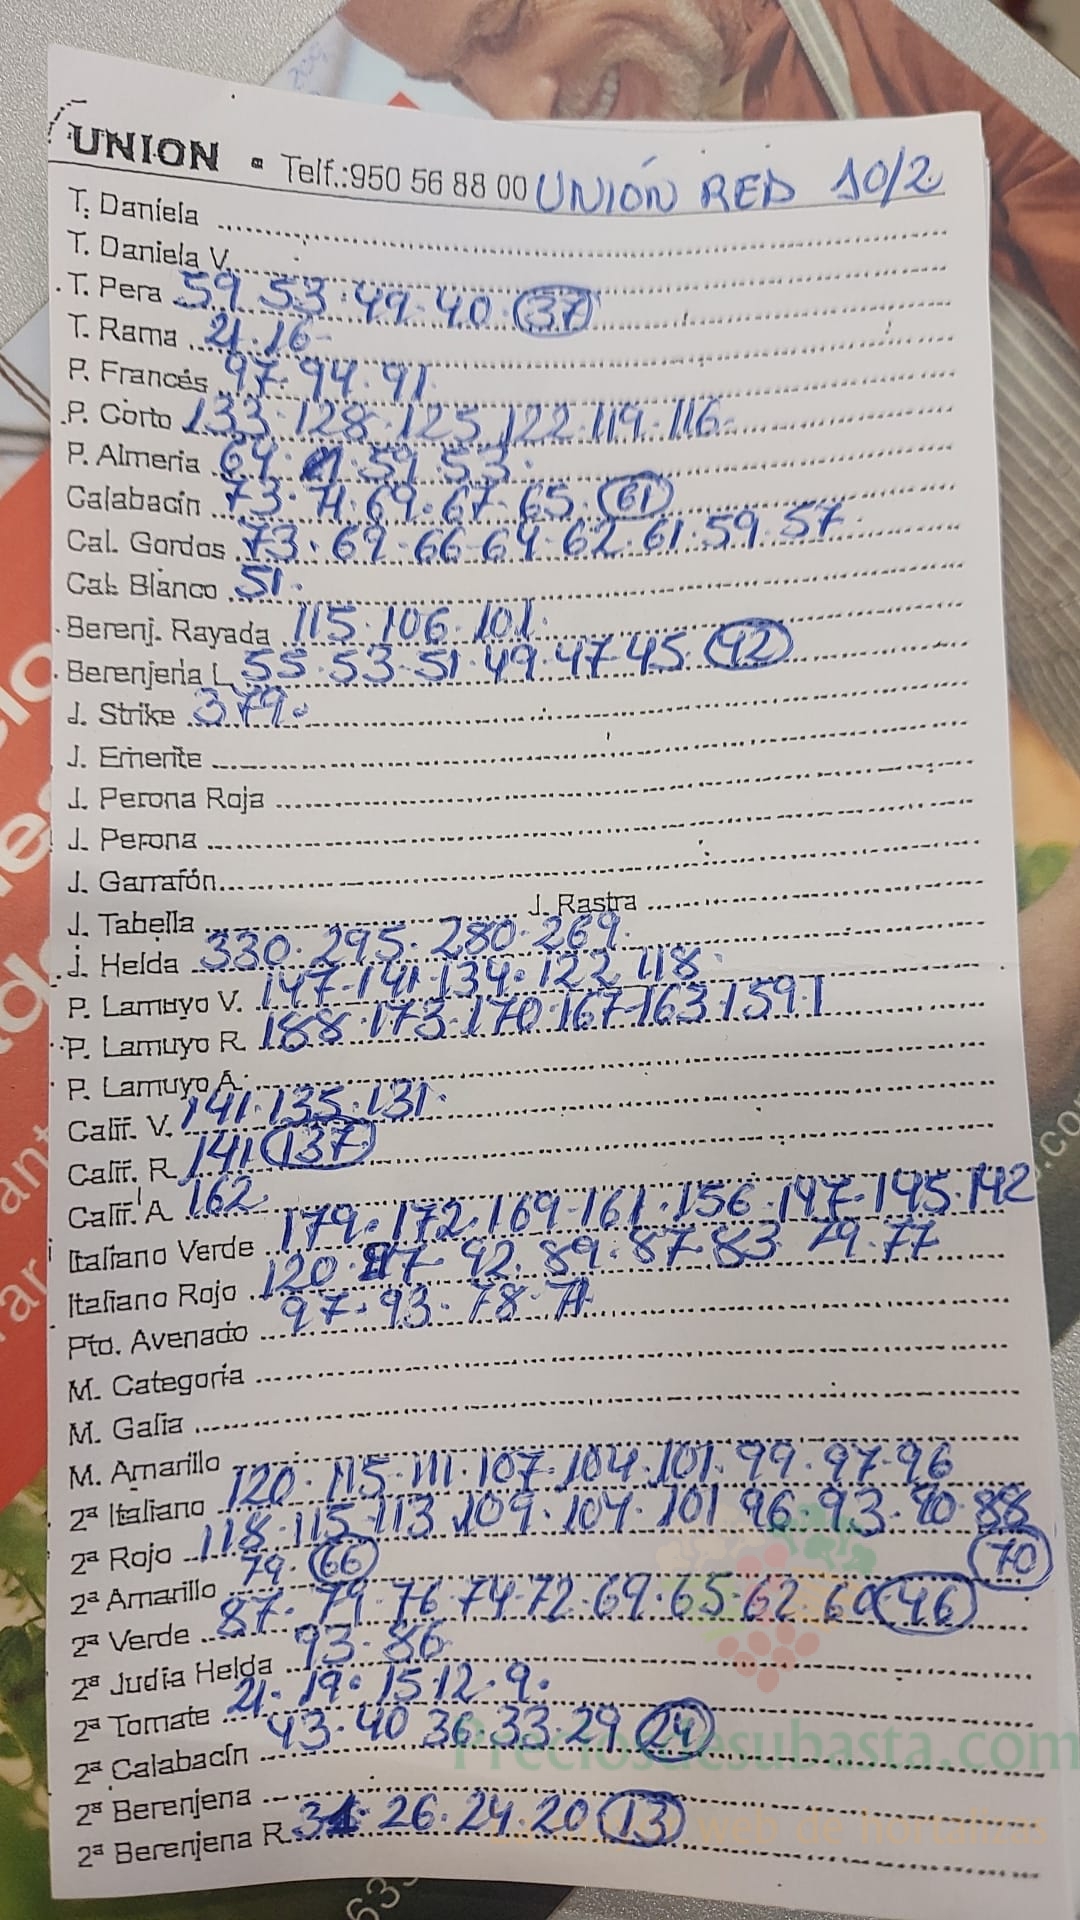 UNION - Telf.:950 56 88 00 UNIÓN RED 10/2
T. Daniela
T. Daniela V.
T. Pera 59 53 · 49 · 40 · 37
T. Rama 21 · 16
P. Francés 97 · 94 · 91
P. Corto 133 · 128 · 125 122 · 119 · 116
P. Almeria 64 · 59 · 53 ·
Calabacín 73 · 71 · 69 · 67 · 65 · 61
Cal. Gordos 73 · 69 · 66 · 64 · 62 · 61 · 59 · 57
Cal. Blanco 51 ·
Berenj. Rayada 115 · 106 · 101
Berenjena L 55 · 53 · 51 · 49 · 47 · 45 · 42
J. Strike 379 ·
J. Emerite
J. Perona Roja
J. Perona
J. Garrafón
J. Tabella J. Rastra
J. Helda 330 · 295 · 280 · 269
P. Lamuyo V. 147 · 141 · 134 · 122 118 ·
P. Lamuyo R. 188 · 173 · 170 · 167 · 163 · 159
P. Lamuyo A.
Calif. V. 141 · 135 · 131 ·
Calif. R. 141 137
Calif. A. 162
Italiano Verde 179 · 172 · 169 · 161 · 156 · 147 · 145 · 142
Italiano Rojo 120 · 97 · 92 · 89 · 87 · 83 79 · 77
Pto. Avenado 97 · 93 · 78 · 71
M. Categoría
M. Galia
M. Amarillo
2ª Italiano 120 · 115 · 111 · 107 · 104 · 101 · 99 · 97 · 96
2ª Rojo 118 · 115 · 113 · 109 · 104 · 101 96 · 93 · 90 · 88 70
2ª Amarillo 79 · 66
2ª Verde 87 · 79 · 76 · 74 · 72 · 69 · 65 · 62 · 60 46
2ª Judía Helda 93 · 86
2ª Tomate 21 · 19 · 15 12 · 9 ·
2ª Calabacín 43 · 40 36 · 33 · 29 24
2ª Berenjena
2ª Berenjena R. 31 · 26 · 24 · 20 13
Preciosdesubasta.com
web de hortalizas